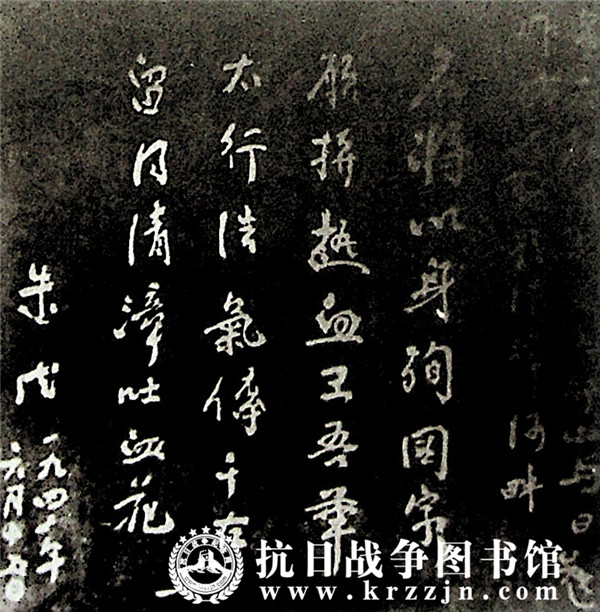 河畔
名將以身殉国家
願拼熱血卫吾華
太行浩氣傳千古
留得清漳吐血花
朱德
一九四二年
六月十五日
抗日战争图书馆
www.krzzjn.com